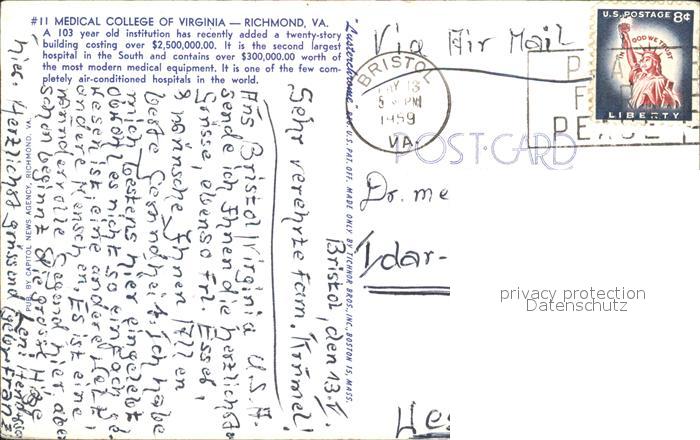 #11 MEDICAL COLLEGE OF VIRGINIA — RICHMOND, VA.
A 103 year old institution has recently added a twenty-story
building costing over $2,500,000.00. It is the second largest
hospital in the South and contains over $300,000.00 worth of
the most modern medical equipment. It is one of the few com-
pletely air-conditioned hospitals in the world.
PUB. BY CAPITOL NEWS AGENCY, RICHMOND, VA.
REG. U.S. PAT. OFF. MADE ONLY BY TICHNOR BROS., INC., BOSTON 15, MASS.
Via Air Mail
BRISTOL
1959
VA.
U.S. POSTAGE 8¢
IN GOD WE TRUST
LIBERTY
POST CARD
Dr. me
Idar-
privacy protection
Datenschutz
Bristol, den 13.V.
Sehr verehrte Fam. Krümmel!
Aus Bristol/Virginia U.S.A.
sende ich Ihnen die herzlichsten
Grüsse, ebenso Frl. Esser,
wünsche Ihnen Allen
beste Gesundheit. Ich habe
mich bestens hier eingelebt
obwohl es nicht so einfach ge-
wesen ist, eine andere Welt,
andere Menschen. Es ist eine
wundervolle Gegend hier aber
schon beginnt die grosse Hitze
hier. Herzlichst grüssend